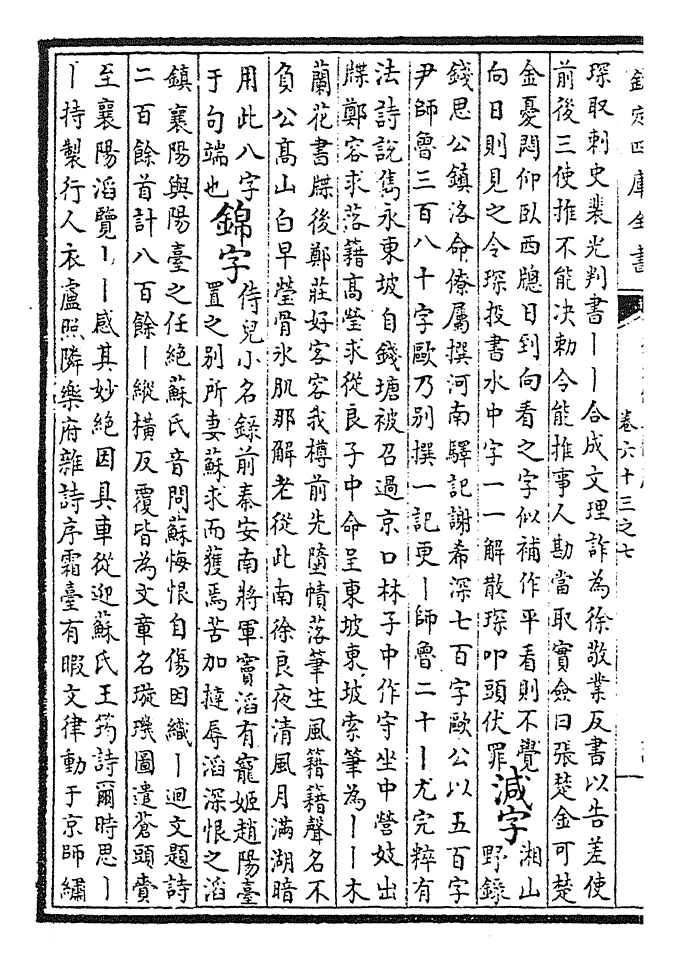 欽定四庫全書
卷六十三之七
琛取刺史裴光判書丨丨合成文理詐為徐敬業反書以告差使
前後三使推不能決勅令能推事人勘當取實僉曰張楚金可楚
金憂悶仰臥西牕日到向看之字似補作平看則不覺
向日則見之令琛投書水中字一一解散琛叩頭伏罪
減字
湘山
野錄
錢思公鎮洛命僚屬撰河南驛記謝希深七百字歐公以五百字
尹師魯三百八十字歐乃別撰一記更丨師魯二十丨尤完粹有
法詩說雋永東坡自錢塘被召過京口林子中作守坐中營妓出
牒鄭容求落籍高瑩求從良子中命呈東坡東坡索筆為丨丨木
蘭花書牒後鄭莊好客容我樽前先墮幘落筆生風籍籍聲名不
負公高山白早瑩骨氷肌那解老從此南徐良夜清風月滿湖暗
用此八字
于句端也
錦字
侍兒小名錄前秦安南將軍竇滔有寵姬趙陽臺
置之別所妻蘇求而獲焉苦加撻辱滔深恨之滔
鎮襄陽與陽臺之任絕蘇氏音問蘇悔恨自傷因織丨迴文題詩
二百餘首計八百餘丨縱橫反覆皆為文章名璇璣圖遣蒼頭賫
至襄陽滔覽丨丨感其妙絕因具車從迎蘇氏王筠詩爾時思丨
丨持製行人衣盧照隣樂府雜詩序霜臺有暇文律動于京師繡